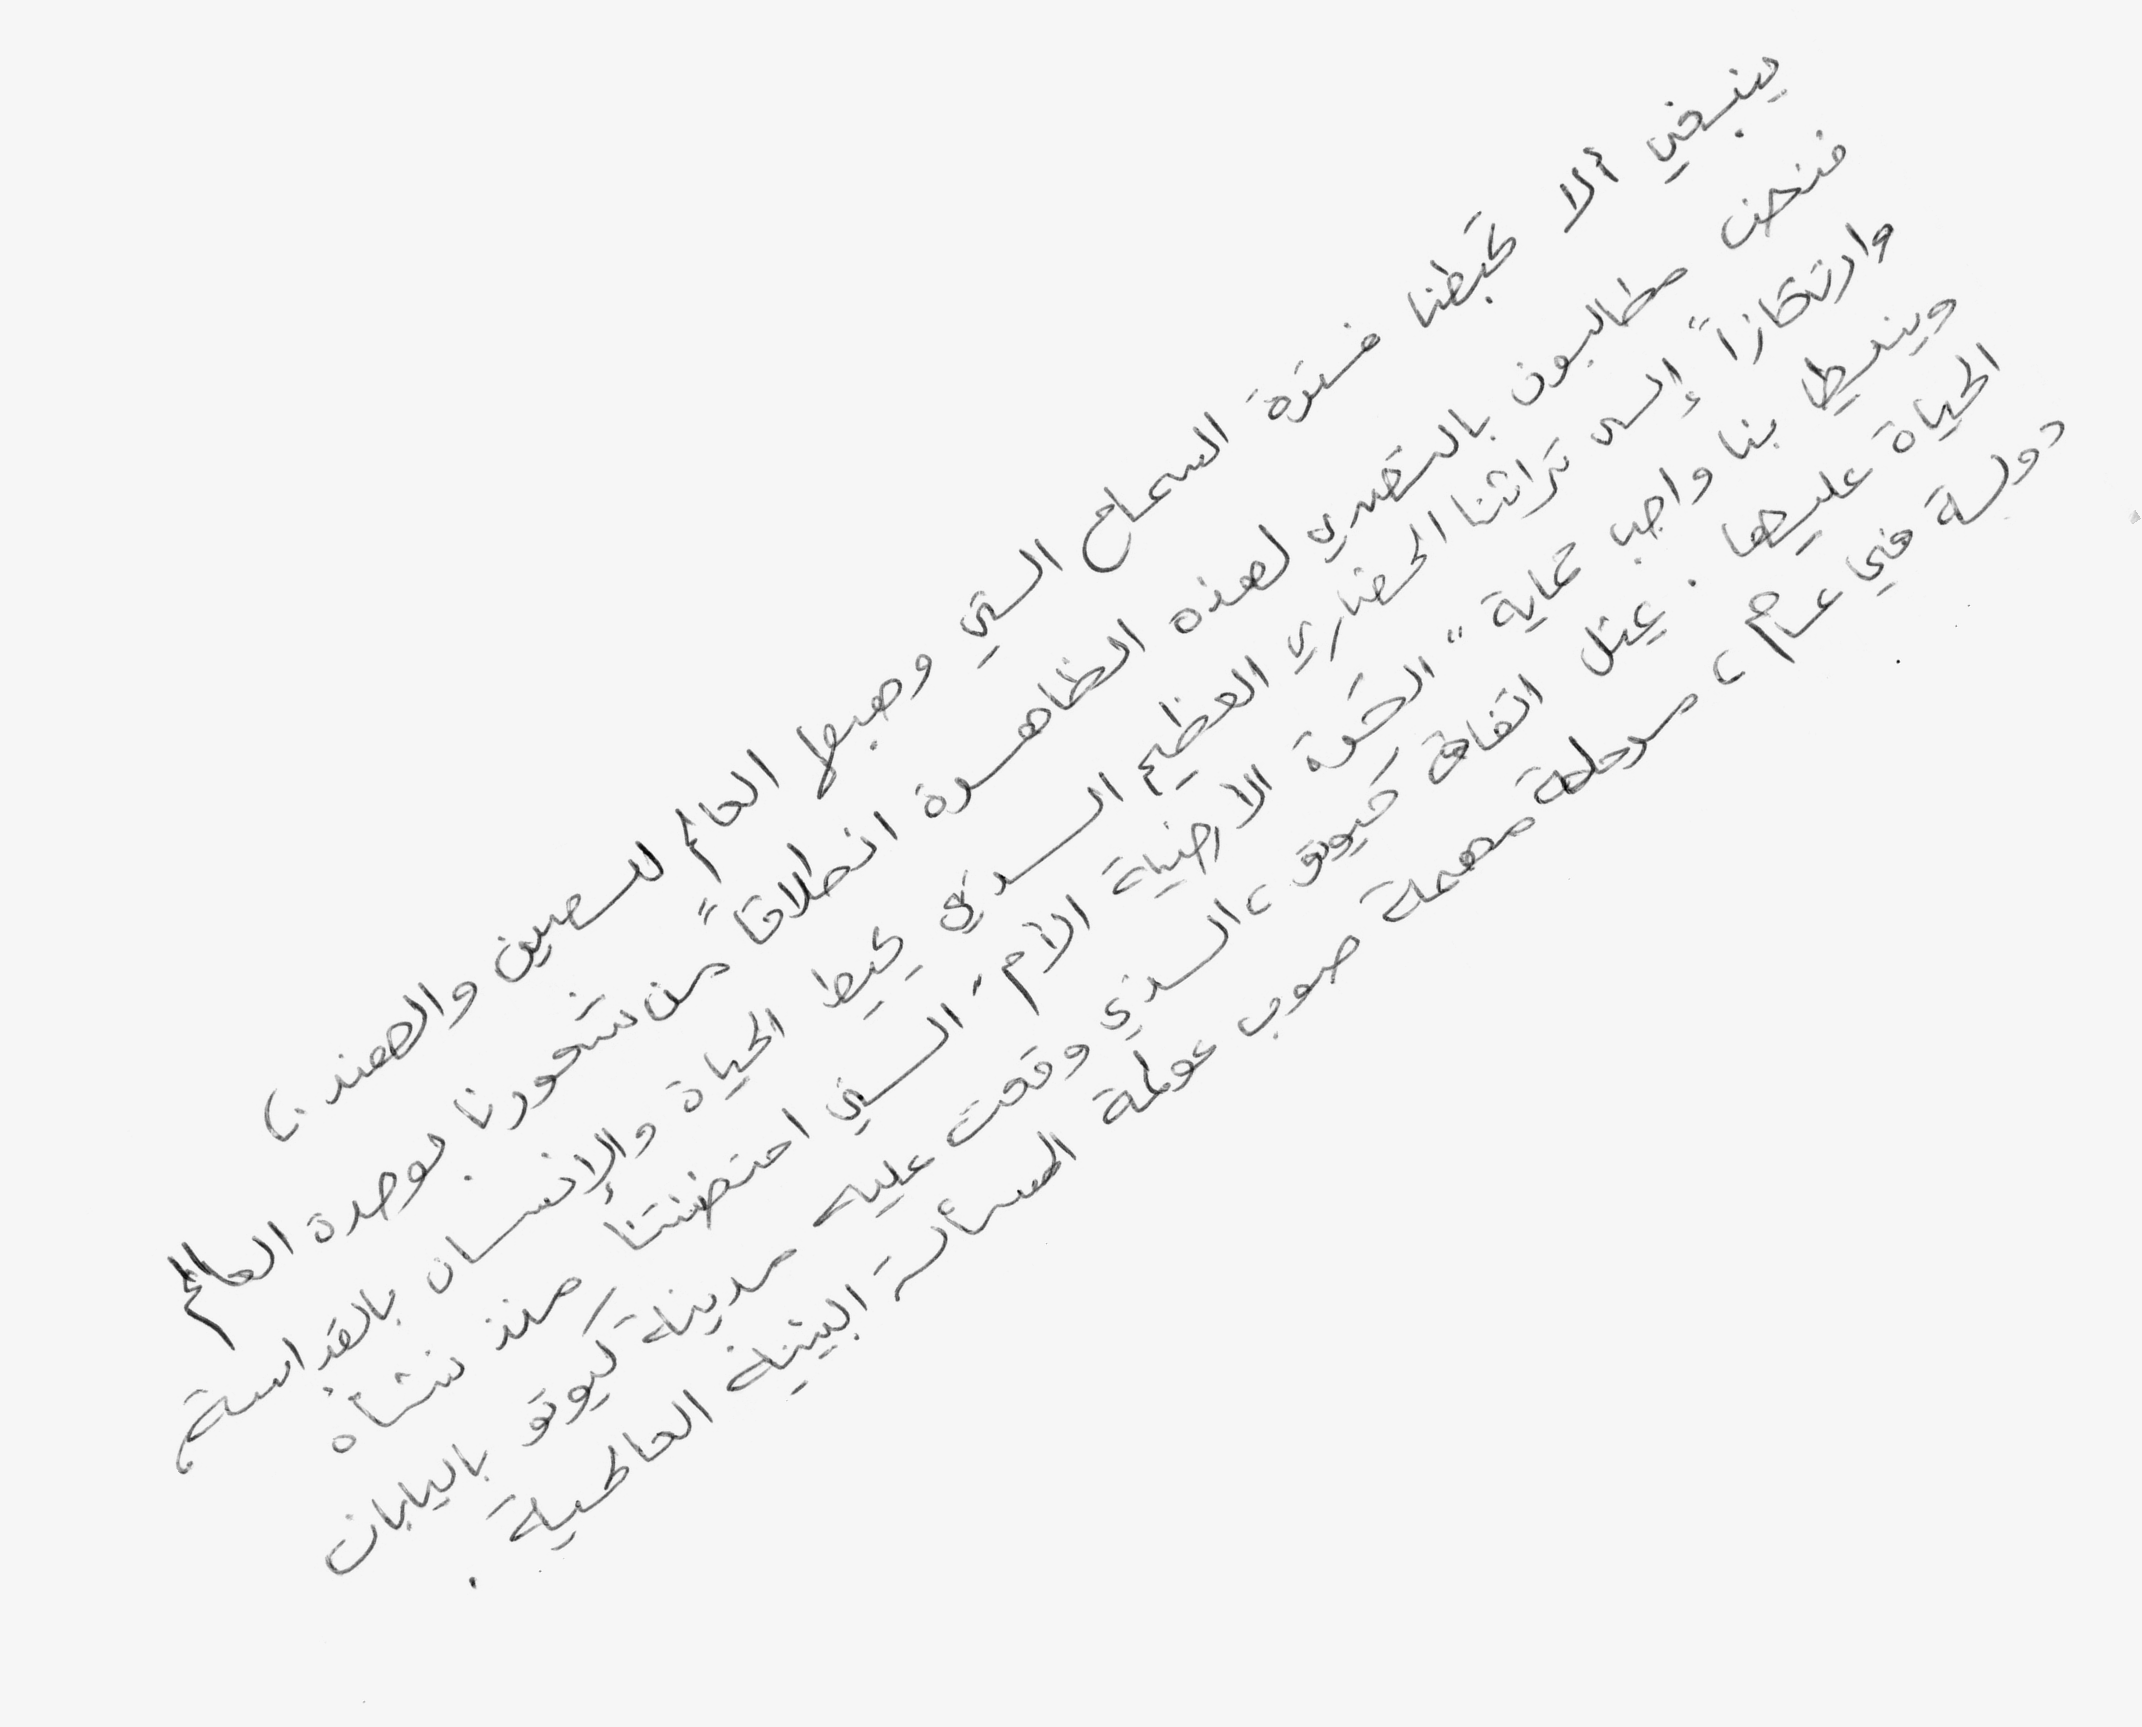 ينبغي ألا تحبطنا فترة السماح التي وهبها العالم للصين والهند،
فنحن مطالبون بالتصدي لهذه الظاهرة انطلاقاً من شعورنا بوحدة العالم
وارتكازاً إلى تراثنا الحضاري العظيم الذي يحيط الحياة والإنسان بالقداسة،
وينيط بنا واجب حماية "الشقة الأرضية الأم" التي احتضنتنا منذ نشأة
الحياة عليها. يمثل اتفاق كيوتو، الذي وقعت عليه مدينة كيوتو باليابان
دولة في عام ، مرحلة مهمة صوب عولمة المسألة البيئية العالمية.